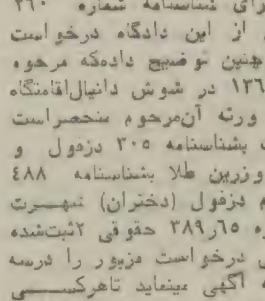 رای شناسنامه شماره ۳٦۰
از این دادگاه درخواست
چنین توضیح داده‌که مرحوم
۱۳٦ در شوش دانیال‌اقامتگاه
ورثه آن‌مرحوم منحصر‌است
بشناسنامه ۳۰۵ دزفول و
و زرین طلا بشناسنامه ٤۸۸
دزفول (دختران) شهرت
٦۵ر۳۸۹ حقوقی ۲ثبت‌شده
درخواست مزبور را درسه
آگهی مینماید تاهرکسی